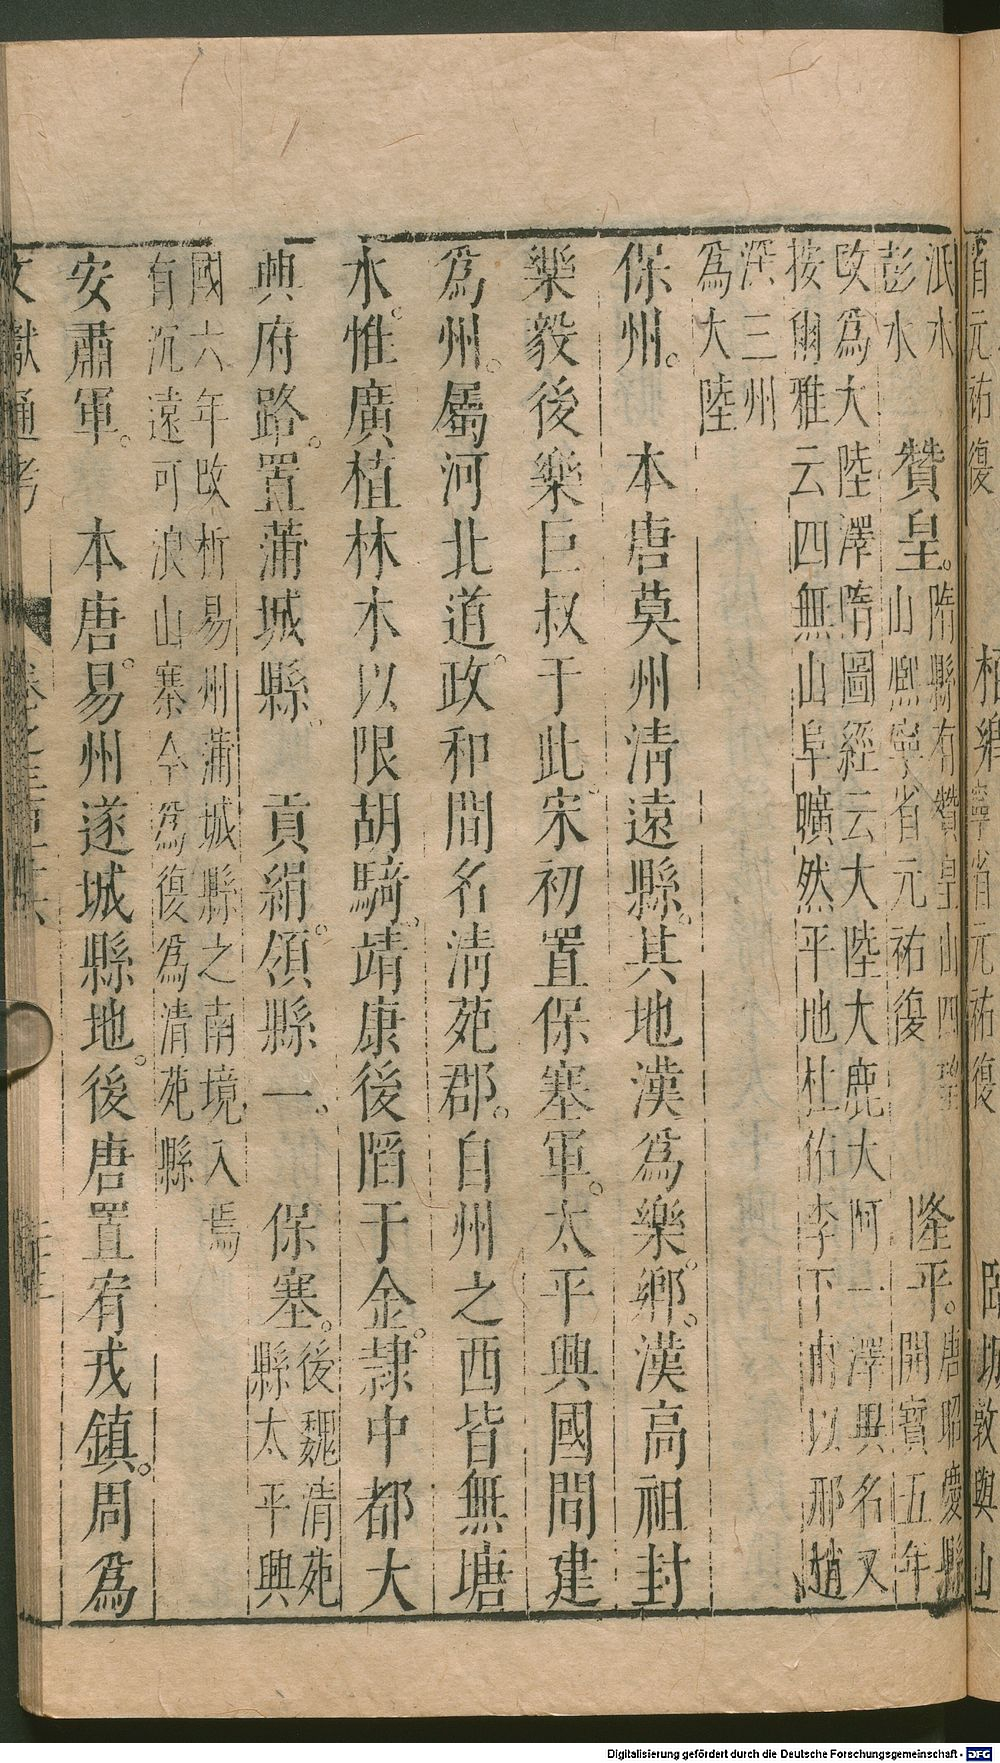 省元祐復　栢鄉寧省元祐復　臨城敦輿山
泜水
彭水　贊皇。隋縣有贊皇山四望
山熈寧省元祐復　隆平。唐昭慶縣
開寳五年
改爲大陸澤隋圖經云大陸大鹿大阿一澤異名又
按爾雅云四無山阜曠然平地杜佑李下由以邢趙
深三州
爲大陸
保州。　本唐莫州清遠縣。其地漢爲樂鄉。漢高祖封
樂毅後樂巨叔于此宋初置保塞軍。太平興國間建
爲州。屬河北道。政和間名清苑郡。自州之西皆無塘
水。惟廣植林木以限胡騎。靖康後陷于金。隷中都大
興府路。置蒲城縣。　貢絹。領縣一。　保塞。後魏清苑
縣太平興
國六年改析易州蒲城縣之南境入焉
有沉遠可浪山寨今爲復爲清苑縣
安肅軍。　本唐。易州遂城縣地。後唐置宥戎鎮。周爲
文獻通考　卷之三百十六